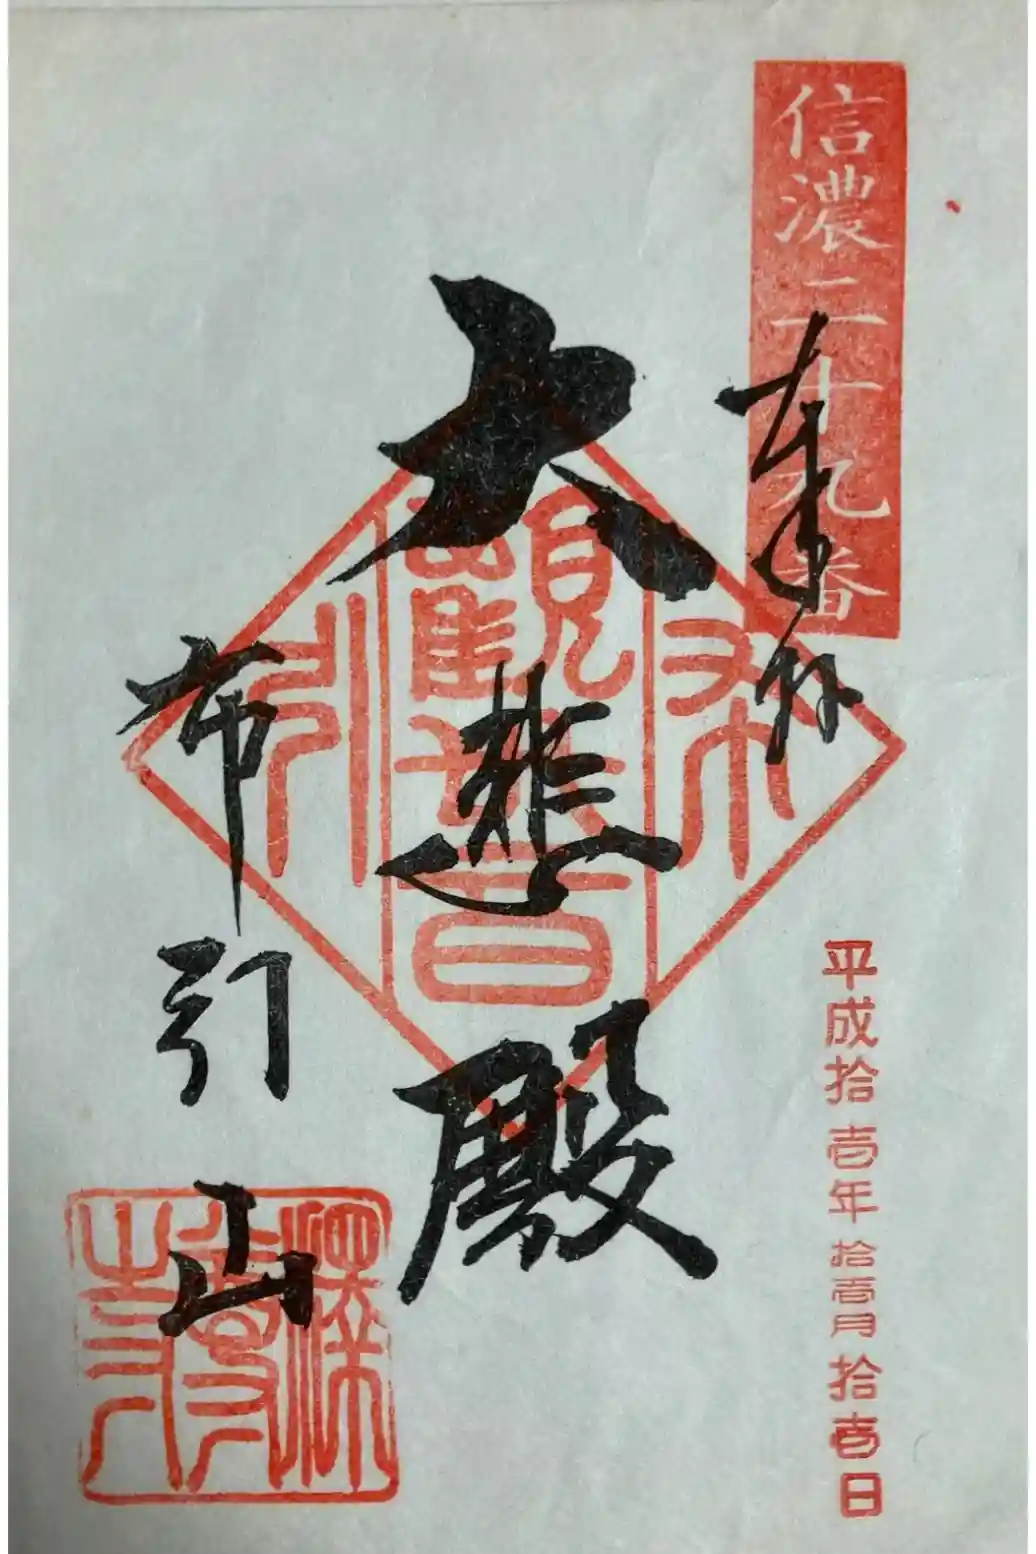 信濃二十九番
奉拝
平成拾壱年拾壱月拾壱日
大悲殿
布
觀世音
引
布引山
釈尊寺